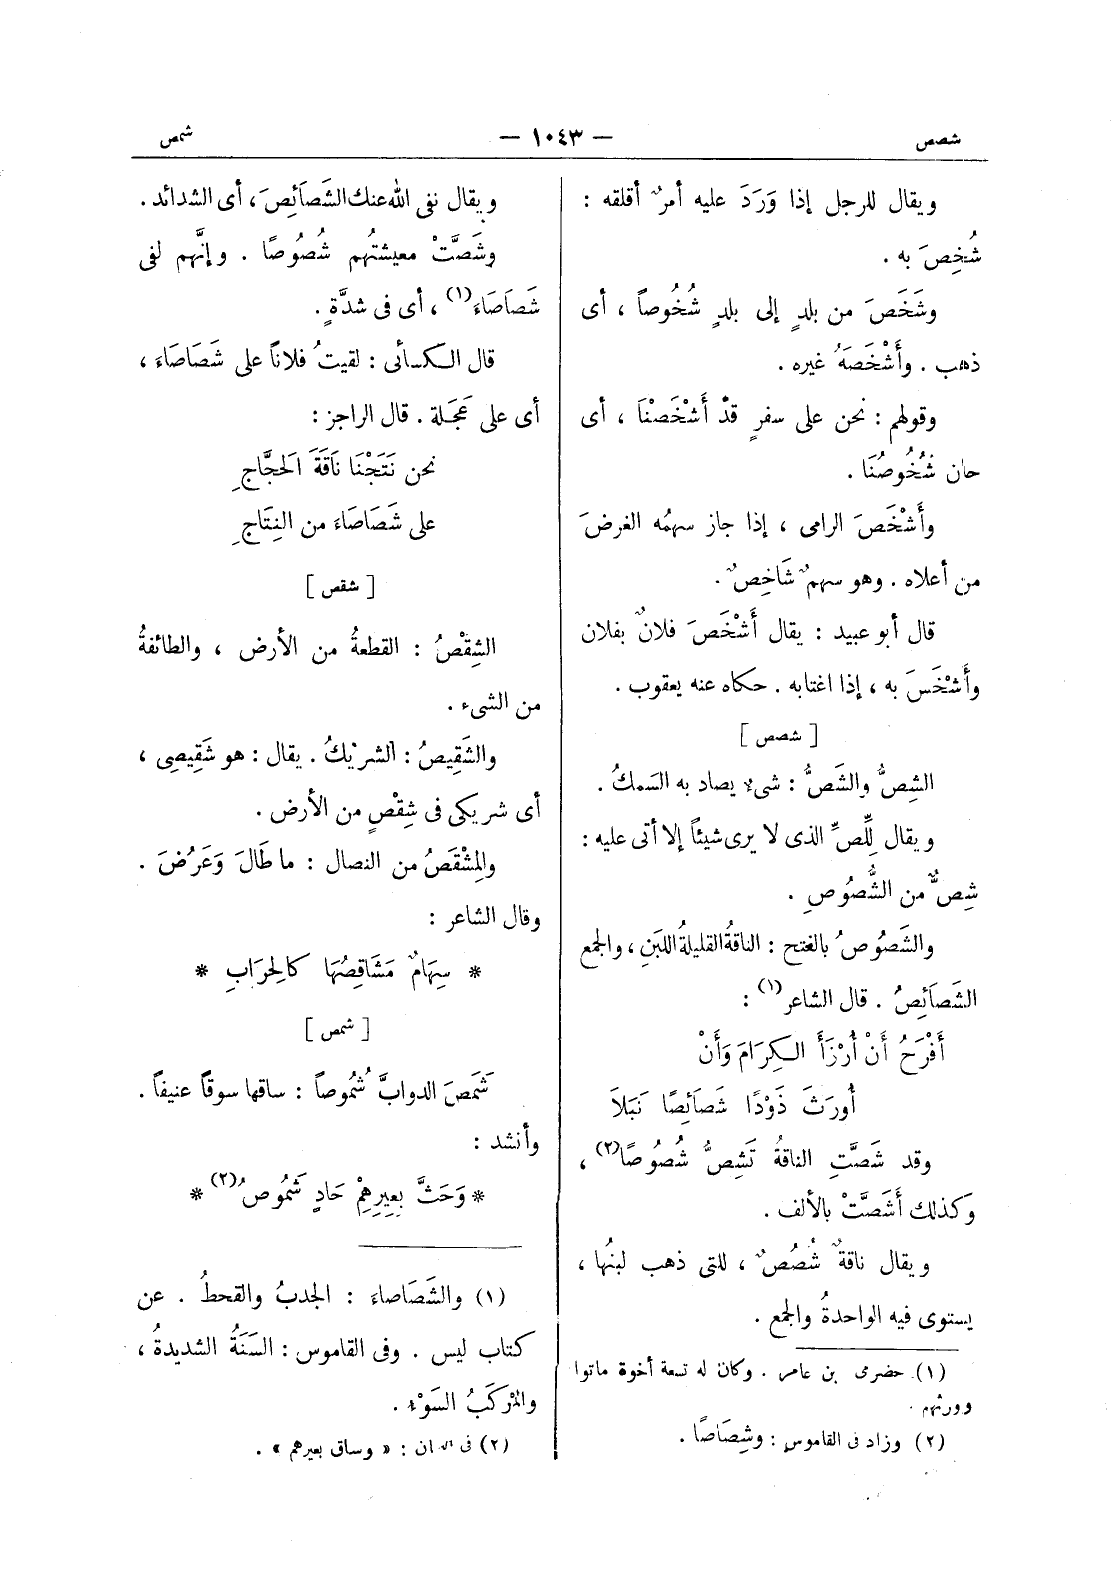 شصص
— ١٠٤٣ —
شمص
ويقال للرجل إذا وَرَدَ عليه أمرٌ أقلقه :
شُخِصَ به .
وشَخَصَ من بلدٍ إلى بلدٍ شُخُوصاً ، أى
ذهب . وأَشْخَصَهُ غيره .
وقولهم : نحن على سفرٍ قدْ أَشْخَصْنَا ، أى
حان شُخُوصُنَا .
وأَشْخَصَ الرامى ، إذا جاز سهمُه الغرضَ
من أعلاه . وهو سهمٌ شَاخِصٌ .
قال أبو عبيد : يقال أَشْخَصَ فلانٌ بفلان
وأَشْخَسَ به ، إذا اغتابه . حكاه عنه يعقوب .
[ شصص ]
الشِصُّ والشَصُّ : شىء يصاد به السَمكُ .
ويقال لِلِّصِّ الذى لا يرى شيئاً إلا أتى عليه :
شِصٌّ من الشُّصُوصِ .
والشَصُوصُ بالفتح : الناقةُ القليلةُ اللبَنِ ، والجمع
الشَصَائِصُ . قال الشاعر (١) :
أَفْرَحُ أَنْ أُرْزَأَ الكِرَامَ وَأَنْ
أُورَثَ ذَوْدًا شَصَائِصًا نَبَلاَ
وقد شَصَّتِ الناقةُ تَشِصُّ شُصُوصًا (٢) ،
وَكذلك أَشَصَّتْ بالألف .
ويقال ناقةٌ شُصُصٌ ، للتى ذهب لبنُها ،
يستوى فيه الواحدةُ والجمع .
(١) حضرمى بن عامر . وكان له تسعة أخوة ماتوا
وورثهم .
(٢) وزاد فى القاموس : وشِصَاصًا .
ويقال نفى الله عنك الشَصَائِصَ ، أى الشدائد .
وشَصَّتْ معيشتُهم شُصُوصًا . وإنَّهم لفى
شَصَاصَاءَ (١) ، أى فى شدَّةٍ .
قال الكسائى : لقيتُ فلاناً على شَصَاصَاءَ ،
أى على عَجَلة . قال الراجز :
نحن نَتَجْنَا نَاقَةَ الحَجَّاجِ
على شَصَاصَاءَ من النِتَاجِ
[ شقص ]
الشِقْصُ : القطعةُ من الأرض ، والطائفةُ
من الشىء .
والشَقِيصُ : الشريكُ . يقال : هو شَقِيصِى ،
أى شريكى فى شِقْصٍ من الأرض .
والمِشْقَصُ من النصال : ما طَالَ وَعَرُضَ .
وقال الشاعر :
* سِهَامٌ مَشَاقِصُهَا كالحِرَابِ *
[ شمص ]
شَمَصَ الدوابَّ شُمُوصاً : ساقها سوقاً عنيفاً .
وأنشد :
* وَحَثَّ بِعِيرِهِمْ حَادٍ شَمُوصُ (٢) *
(١) والشَصَاصاءَ : الجدبُ والقحطُ . عن
كتاب ليس . وفى القاموس : السَنَةُ الشديدةُ ،
والمَرْكَبُ السَوْء .
(٢) فى ان : « وساق بعيرهم » .